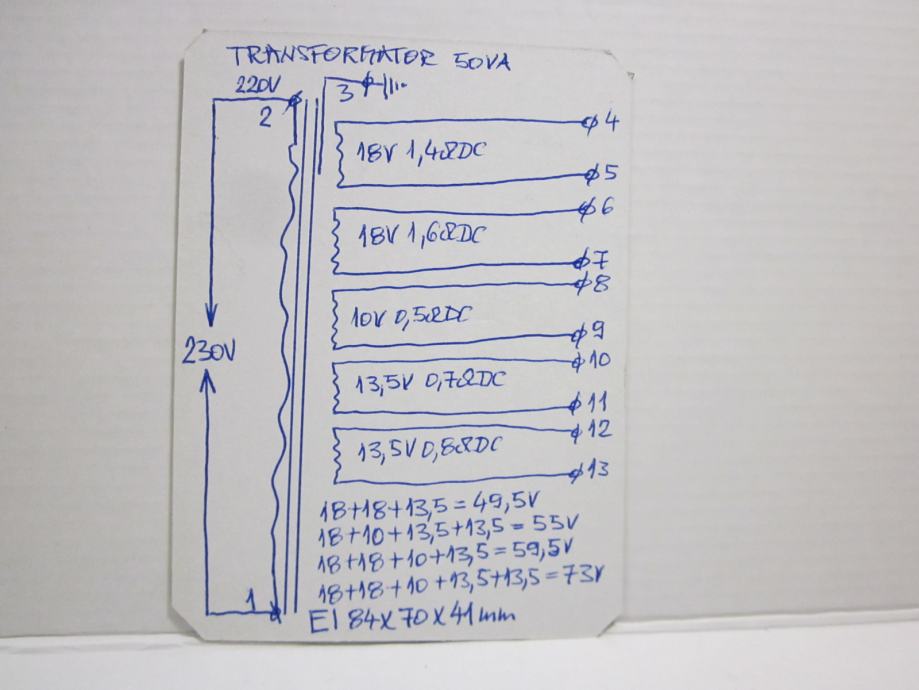 TRANSFORMATOR 50VA
220V
2
3
4
18V 1,4ΩDC
5
6
18V 1,6ΩDC
7
8
10V 0,5ΩDC
9
230V
10
13,5V 0,7ΩDC
11
12
13,5V 0,8ΩDC
13
18+18+13,5=49,5V
18+10+13,5+13,5=55V
18+18+10+13,5=59,5V
18+18+10+13,5+13,5=73V
1
EI 84x70x41mm